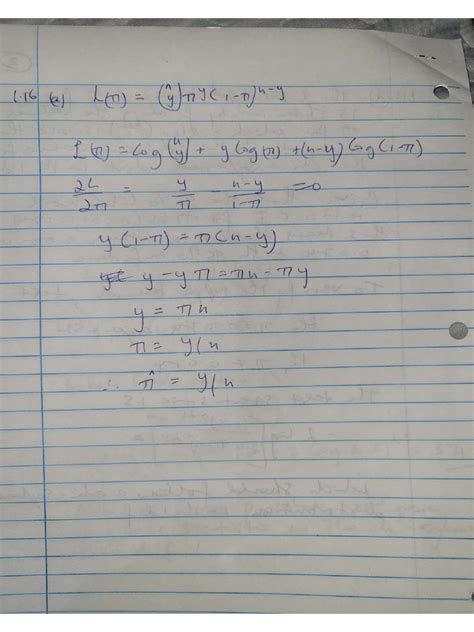 1.16 (a) L(π) = (n y) π^y (1-π)^n-y
L(π) = log (n y) + y log(π) + (n-y) log(1-π)
∂L/∂π = y/π - n-y/1-π = 0
y(1-π) = π(n-y)
y - yπ = πn - πy
y = πn
π = y/n
∴ π̂ = y/n